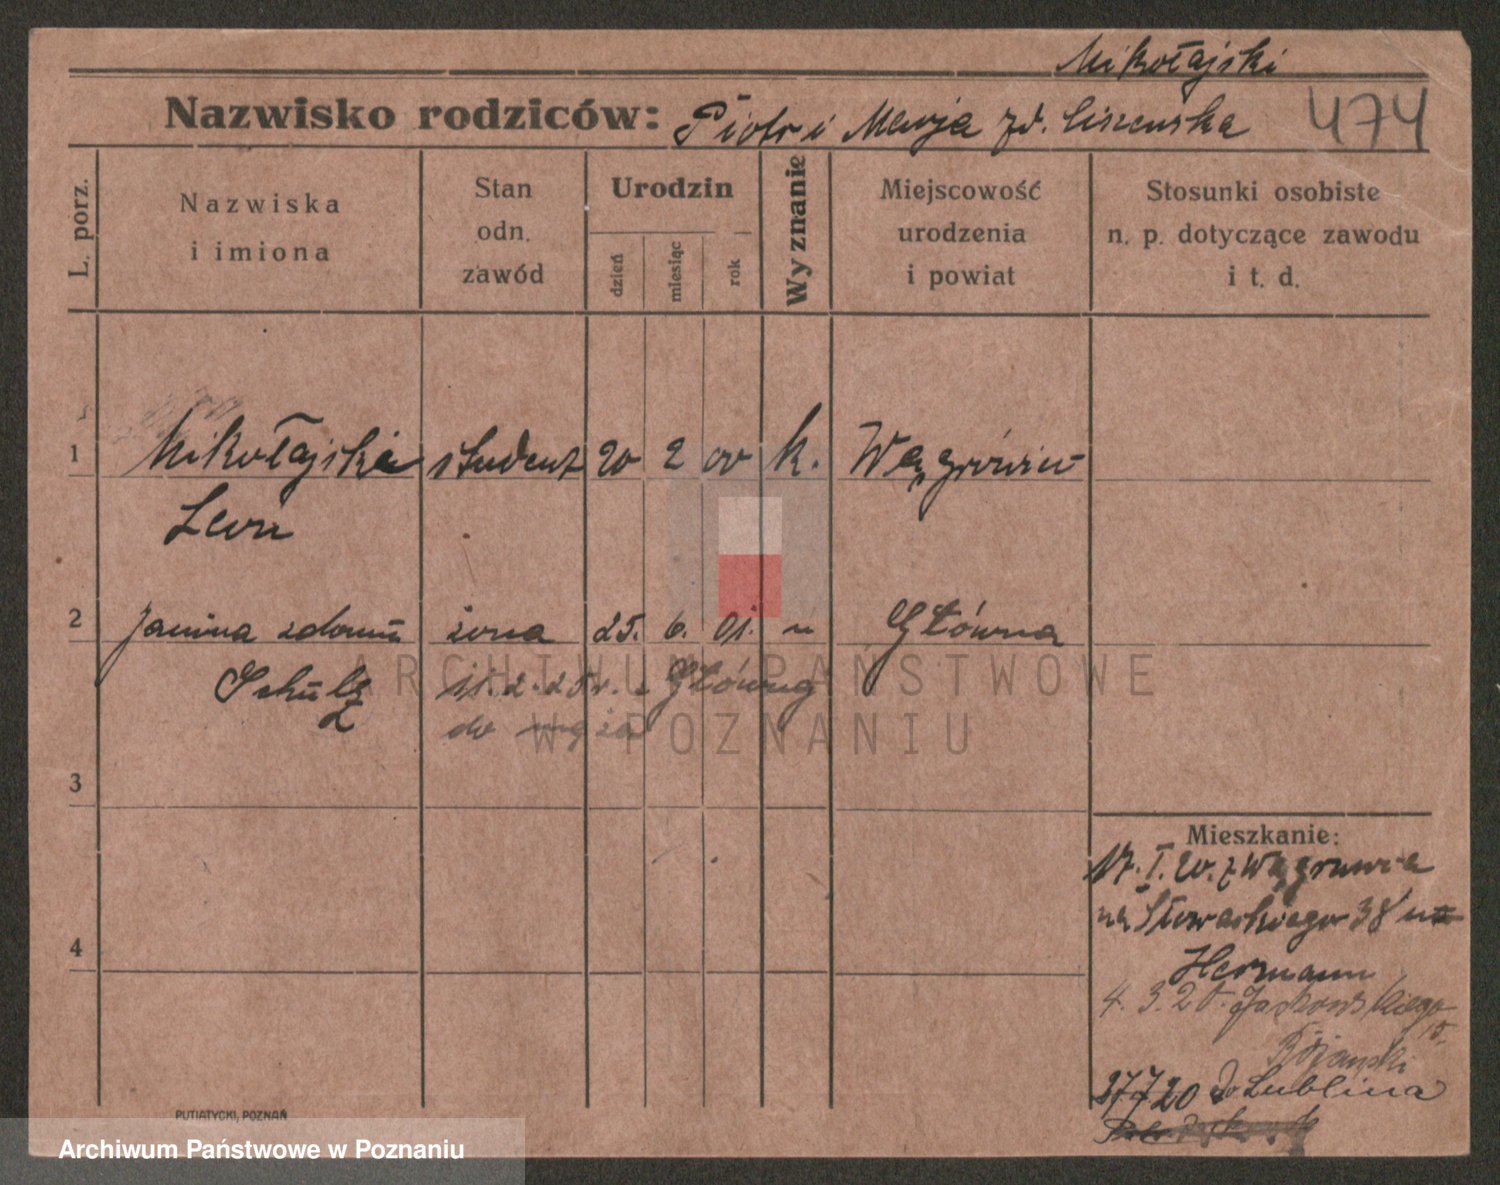 Mikołajski
Nazwisko rodziców: Piotr i Marja zd. Liszewska 474
L. porz.
Nazwiska
i imiona
Stan
odn.
zawód
Urodzin
dzień
miesiąc
rok
Wyznanie
Miejscowość
urodzenia
i powiat
Stosunki osobiste
n. p. dotyczące zawodu
i t. d.
1 Mikołajski student 20 2 00 k. Wągrówiec
Leon
2 Janina zdomu żona 25. 6. 01. " Główna
Schulz 2. Główną
do męża
3
4
Mieszkanie:
17. I. 20. z Wągrowca
na Słowackiego 38 u
Hermann
4. 3. 20. Jackowskiego
27 7 20 do Lublina
PUTIATYCKI, POZNAŃ
ARCHIWUM PAŃSTWOWE
W POZNANIU
Archiwum Państwowe w Poznaniu